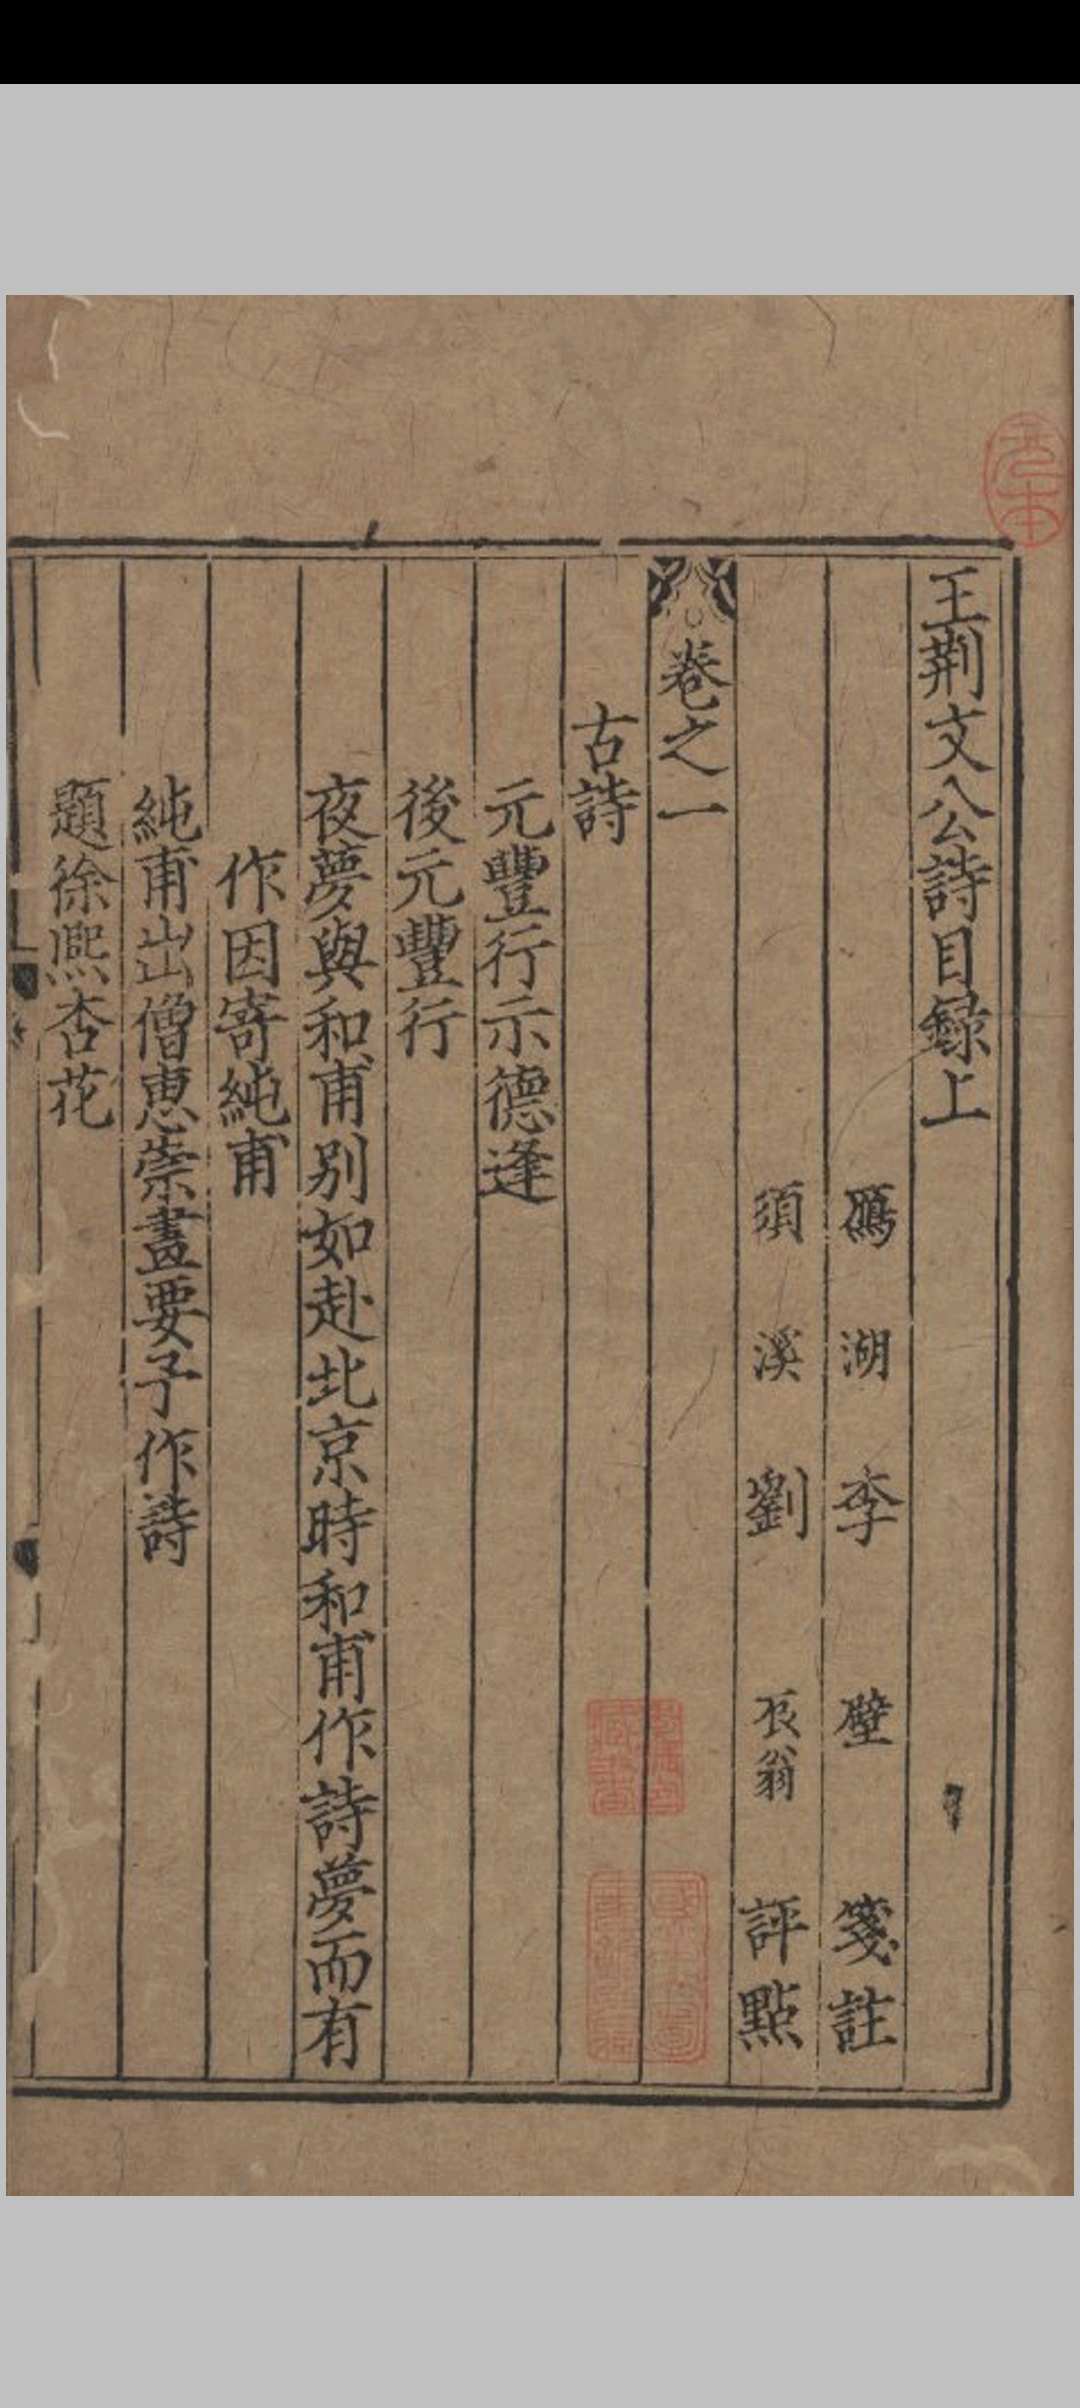 王荆文公詩目録上
鴈湖李壁箋註
須溪劉辰翁評點
卷之一
古詩
元豐行示德逢
後元豐行
夜夢與和甫别如赴北京時和甫作詩夢而有
作因寄純甫
純甫出僧惠崇畫要予作詩
題徐熙杏花